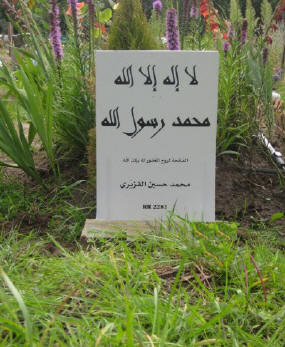 لا إله إلا الله
محمد رسول الله
الفاتحة لروح المغفور له بإذن الله
محمد حسين القزيري
RR 2281